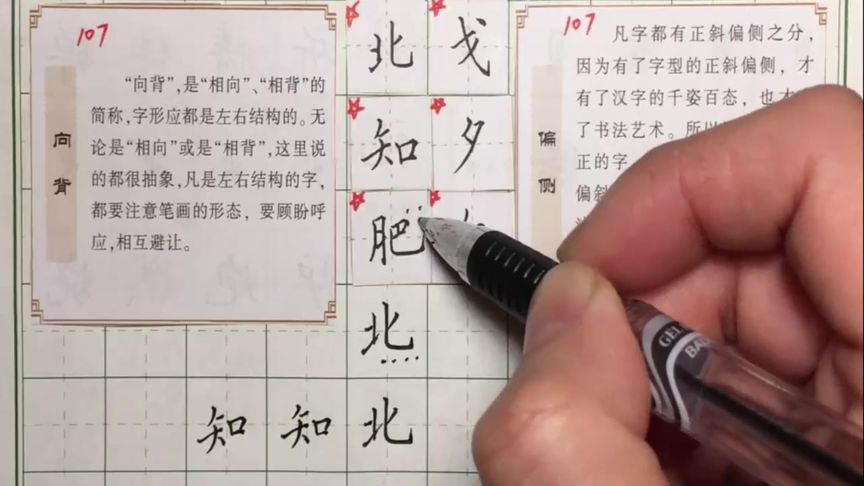 107
向背
“向背”,是“相向”、“相背”的
简称,字形应都是左右结构的。无
论是“相向”或是“相背”,这里说
的都很抽象,凡是左右结构的字,
都要注意笔画的形态，要顾盼呼
应,相互避让。
北 戈
知 夕
肥
北
知 知 北
107
偏侧
凡字都有正斜偏侧之分，
因为有了字型的正斜偏侧，才
有了汉字的千姿百态，也
了书法艺术。所以
正的字
偏斜
GEL